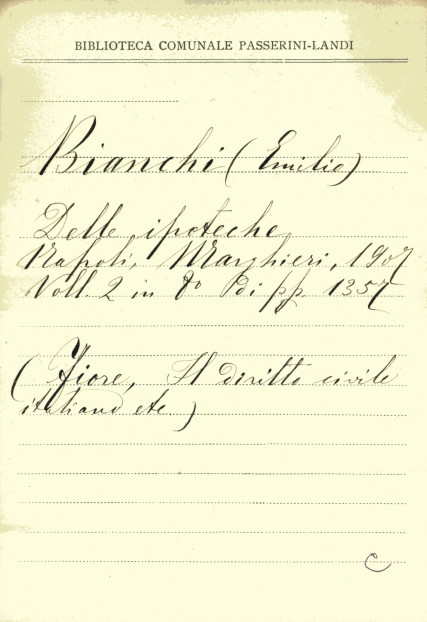 BIBLIOTECA COMUNALE PASSERINI-LANDI
Bianchi (Emilio)
Delle ipoteche
Napoli, Marghieri, 1907
Voll. 2 in 8º di pp. 1357
(Fiore, Il diritto civile
italiano etc.)
C